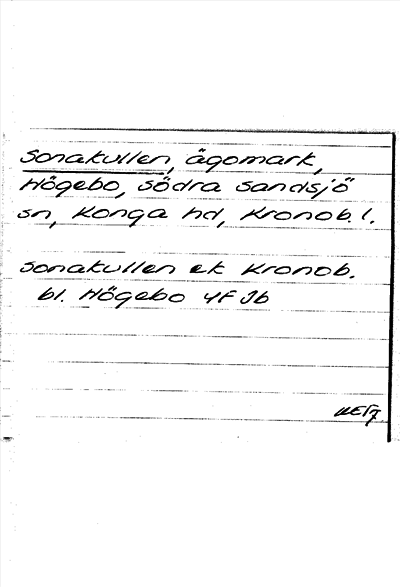 Sonakullen, ägomark,
Högebo, Södra Sandsjö
sn, Konga hd, Kronob. l.
Sonakullen ek Kronob.
bl. Högebo 4F Jb